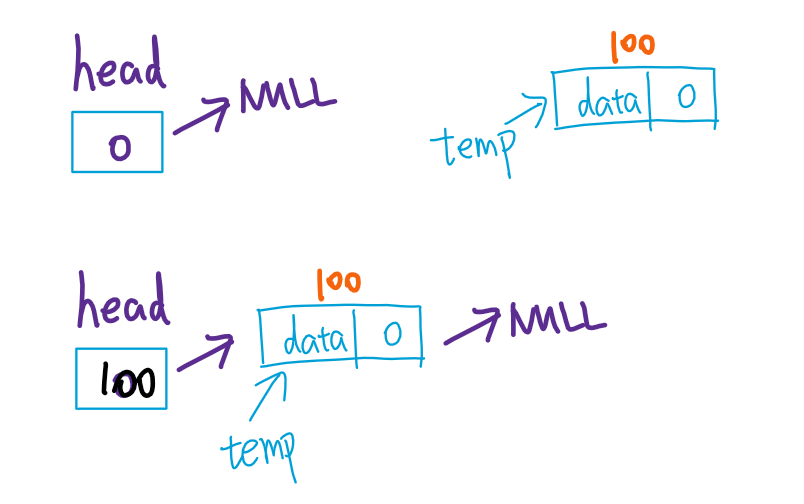 head
0
NULL
100
data 0
temp
head
100
100
data 0
NULL
temp